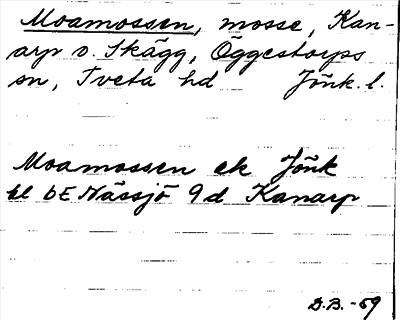 Moamossen, mosse, Kan-
arp o. Skägg, Öggestorps
sn, Tveta hd Jönk. l.
Moamossen ek Jönk
bl DE Nässjö 9d Kanarp
D.B.-59